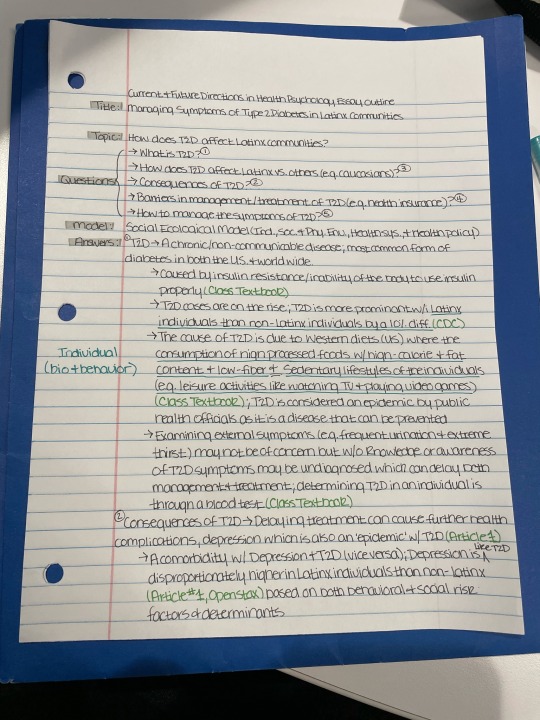 Current + Future Directions in Health Psychology Essay outline
Title: Managing Symptoms of Type 2 Diabetes in Latinx Communities
Topic: How does T2D affect Latinx communities?
→ What is T2D? ①
→ How does T2D affect Latinx vs. others (e.g. caucasians)? ③
Questions → Consequences of T2D? ②
→ Barriers in management/treatment of T2D (e.g. health insurance)? ④
→ How to manage the symptoms of T2D? ⑤
Model: Social Ecological Model (Ind., Soc. + Phy. Env., Health sys., + Health policy)
Answers: ① T2D → A chronic/non-communicable disease, most common form of
diabetes in both the U.S. + worldwide.
→ Caused by insulin resistance/inability of the body to use insulin
properly (Class Textbook)
→ T2D cases are on the rise, T2D is more prominent w/ Latinx
individuals than non-Latinx individuals by a 10% diff. (CDC)
→ The cause of T2D is due to Western diets (US) where the
Individual consumption of high processed foods w/ high-calorie + fat
(bio + behavior) content + low-fiber + Sedentary lifestyles of the individuals
(e.g. leisure activities like watching TV + playing video games)
(Class Textbook); T2D is considered an epidemic by public
health officials as it is a disease that can be prevented
→ Examining external symptoms (e.g. frequent urination + extreme
thirst) may not be of concern but w/o knowledge or awareness
of T2D symptoms may be undiagnosed which can delay both
management + treatment, determining T2D in an individual is
through a blood test (Class Textbook)
② Consequences of T2D → Delaying treatment can cause further health
complications, depression which is also an 'epidemic' w/ T2D (Article 1)
→ A comorbidity w/ Depression + T2D (vice versa); Depression is ^ like T2D
disproportionately higher in Latinx individuals than non-Latinx
(Article #1, Openstax) based on both behavioral + social risk
factors + determinants